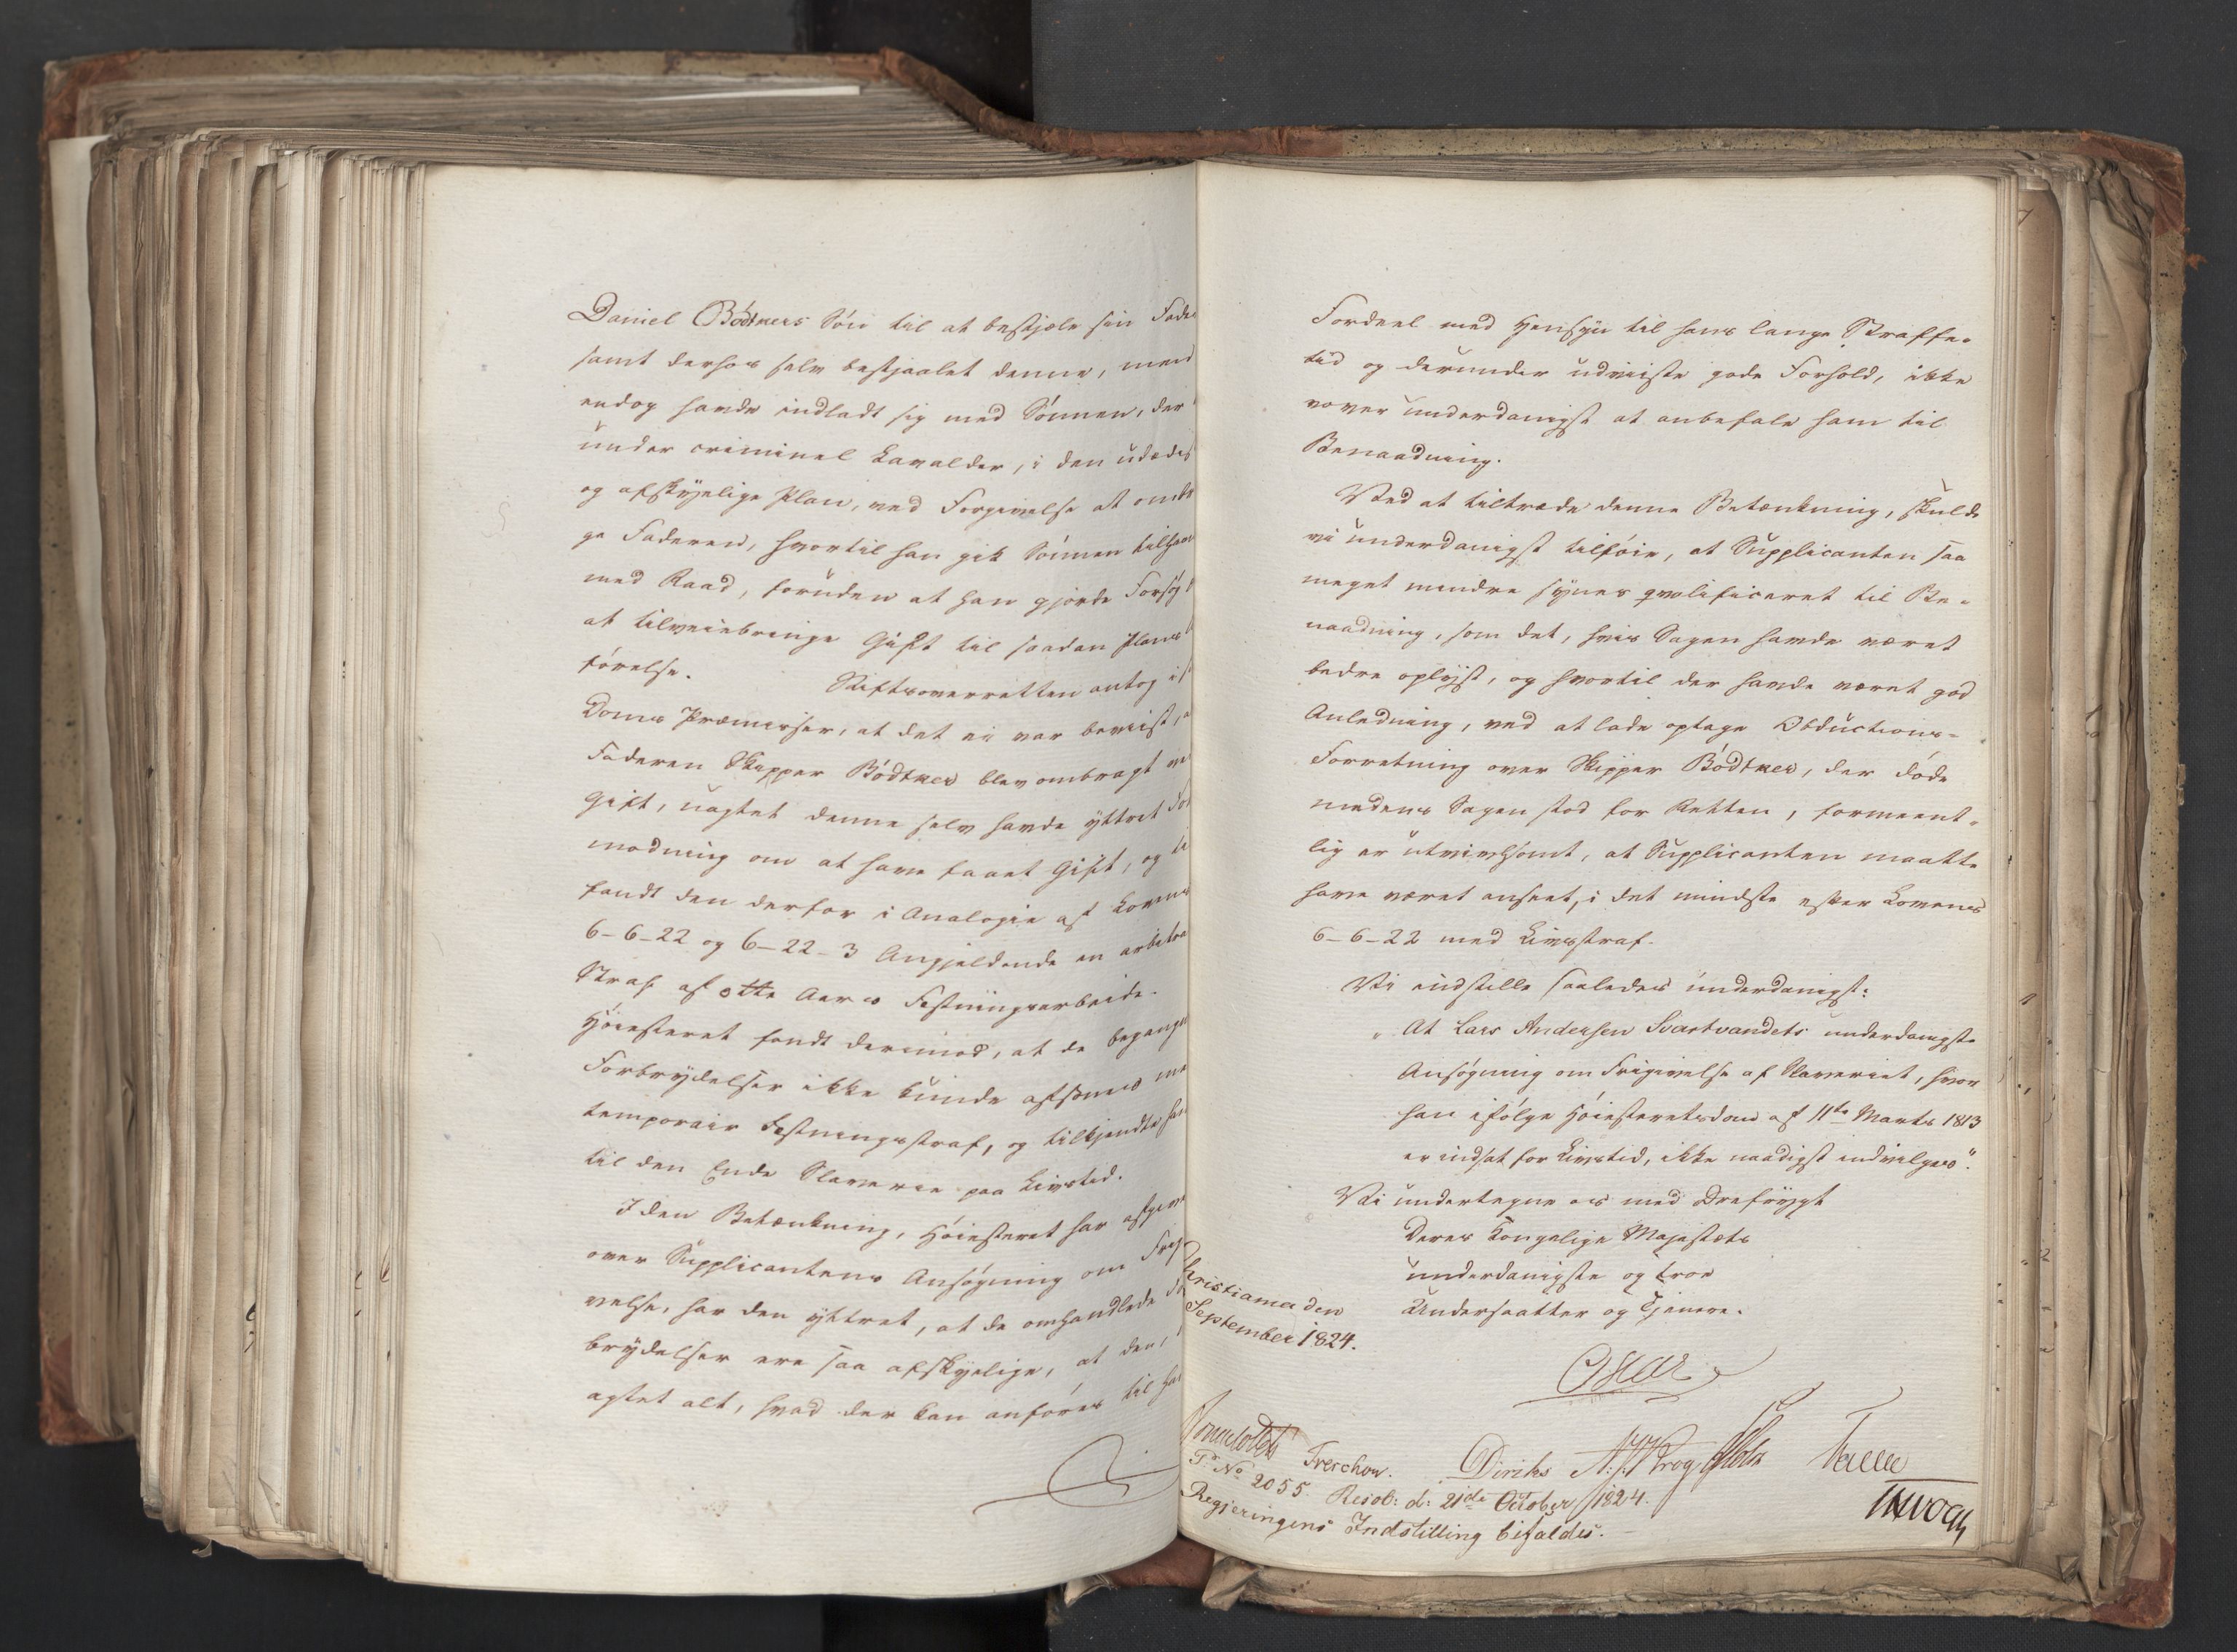 Daniel Bödtkers Sön til at bestjæle sin Fader
samt derhos selv bestjaalet denne, men
endog havde indladt sig med Sönnen, der
under criminel Lavalder, i den udædis
og afskyelige Plan, ved Forgivelse at omb
ge Faderen, hvortil han gik Sönnen tilhaan
med Raad, foruden at han gjorde Forsøg
at tilveiebringe Gift til saadan Plans
förelse. Stiftsoverretten antog i
Doms Præmisser, at det ei var beviist,
Faderen Skipper Bödtker blev ombragt ve
Gift, uagtet denne selv havde yttret For
modning om at have faaet Gift, og
fandt den derfor i Analogie af Lovens
6-6-22 og 6-22-3 Angjeldende en arbitra
Straf af otte Aars Festningsarbeide.
Höiesteret fandt derimod, at de begangn
Forbrydelser ikke kunde afsones me
temporair Festningsstraf, og tilkjendte ham
til den Ende Slaverie paa Livstid.
I den Betænkning, Höiesteret har afgive
over Supplicantens Ansögning om Frigi
velse, har den yttret, at de omhandlede For
brydelser ere saa afskyelige, at den,
agtet alt, hvad der kan anföres til ha
Fordeel med Hensyn til hans lange Straffe-
tid og derunder udviiste gode Forhold, ikke
vover underdanigst at anbefale ham til
Benaadning.
Ved at tiltræde denne Betænkning, skulde
vi underdanigst tilföie, at Supplicanten saa
meget mindre synes qvalificeret til Be-
naadning, som det, hvis Sagen havde været
bedre oplyst, og hvortil der havde været god
Anledning, ved at lade optage Obductions-
Forretning over Skipper Bödtker, der döde
medens Sagen stod for Retten, formeent-
lig er utvivlsomt, at Supplicanten maatte
have været anseet, i det mindste efter Lovens
6-6-22 med Livsstraf.
Vi indstille saaledes underdanigst:
"At Lars Andersen Svartvandets underdanigste
Ansögning om Frigivelse af Slaveriet, hvor
han ifölge Höiesteretsdom af 11te Marts 1813
er indsat for Livstid, ikke naadigst indvilges".
Vi undertegne os med Dyrefrygt
Deres Kongelige Majestæts
underdanigste og troe
Undersaatter og Tjenere.
Christiania den
September 1824.
Oscar
Sommerfeldt Treschow. Diriks Krog Falsen
Vogt
Tr No 2055. Resol: d: 21de October 1824.
Regjeringens Indstilling bifaldes.